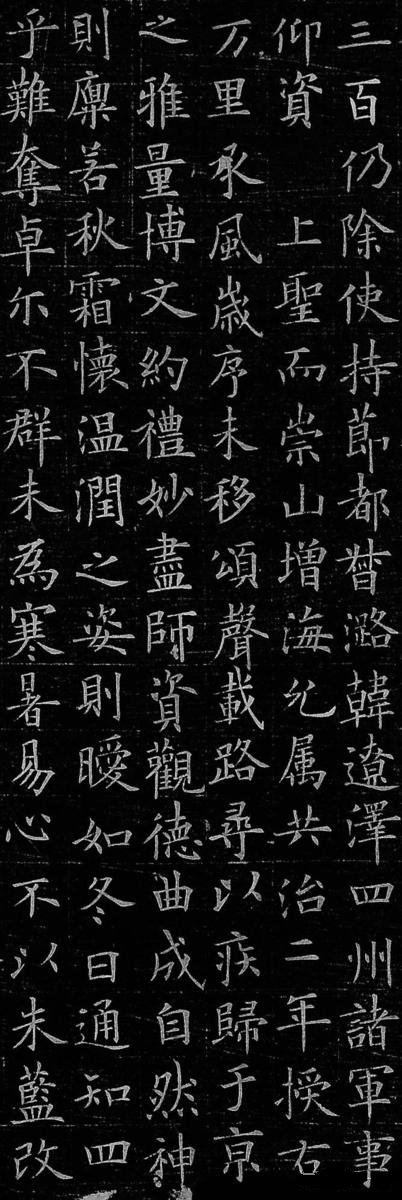 三百仍除使持節都督潞韓遼澤四州諸軍事
仰資 上聖而崇山增海允属共治二年授右
万里承風歲序未移頌聲載路尋以疾歸于京
之雅量博文約禮妙盡師資觀德曲成自然神
則廩若秋霜懷温潤之姿則曖如冬日通知四
乎難奪卓尓不群未為寒暑易心不以朱藍改